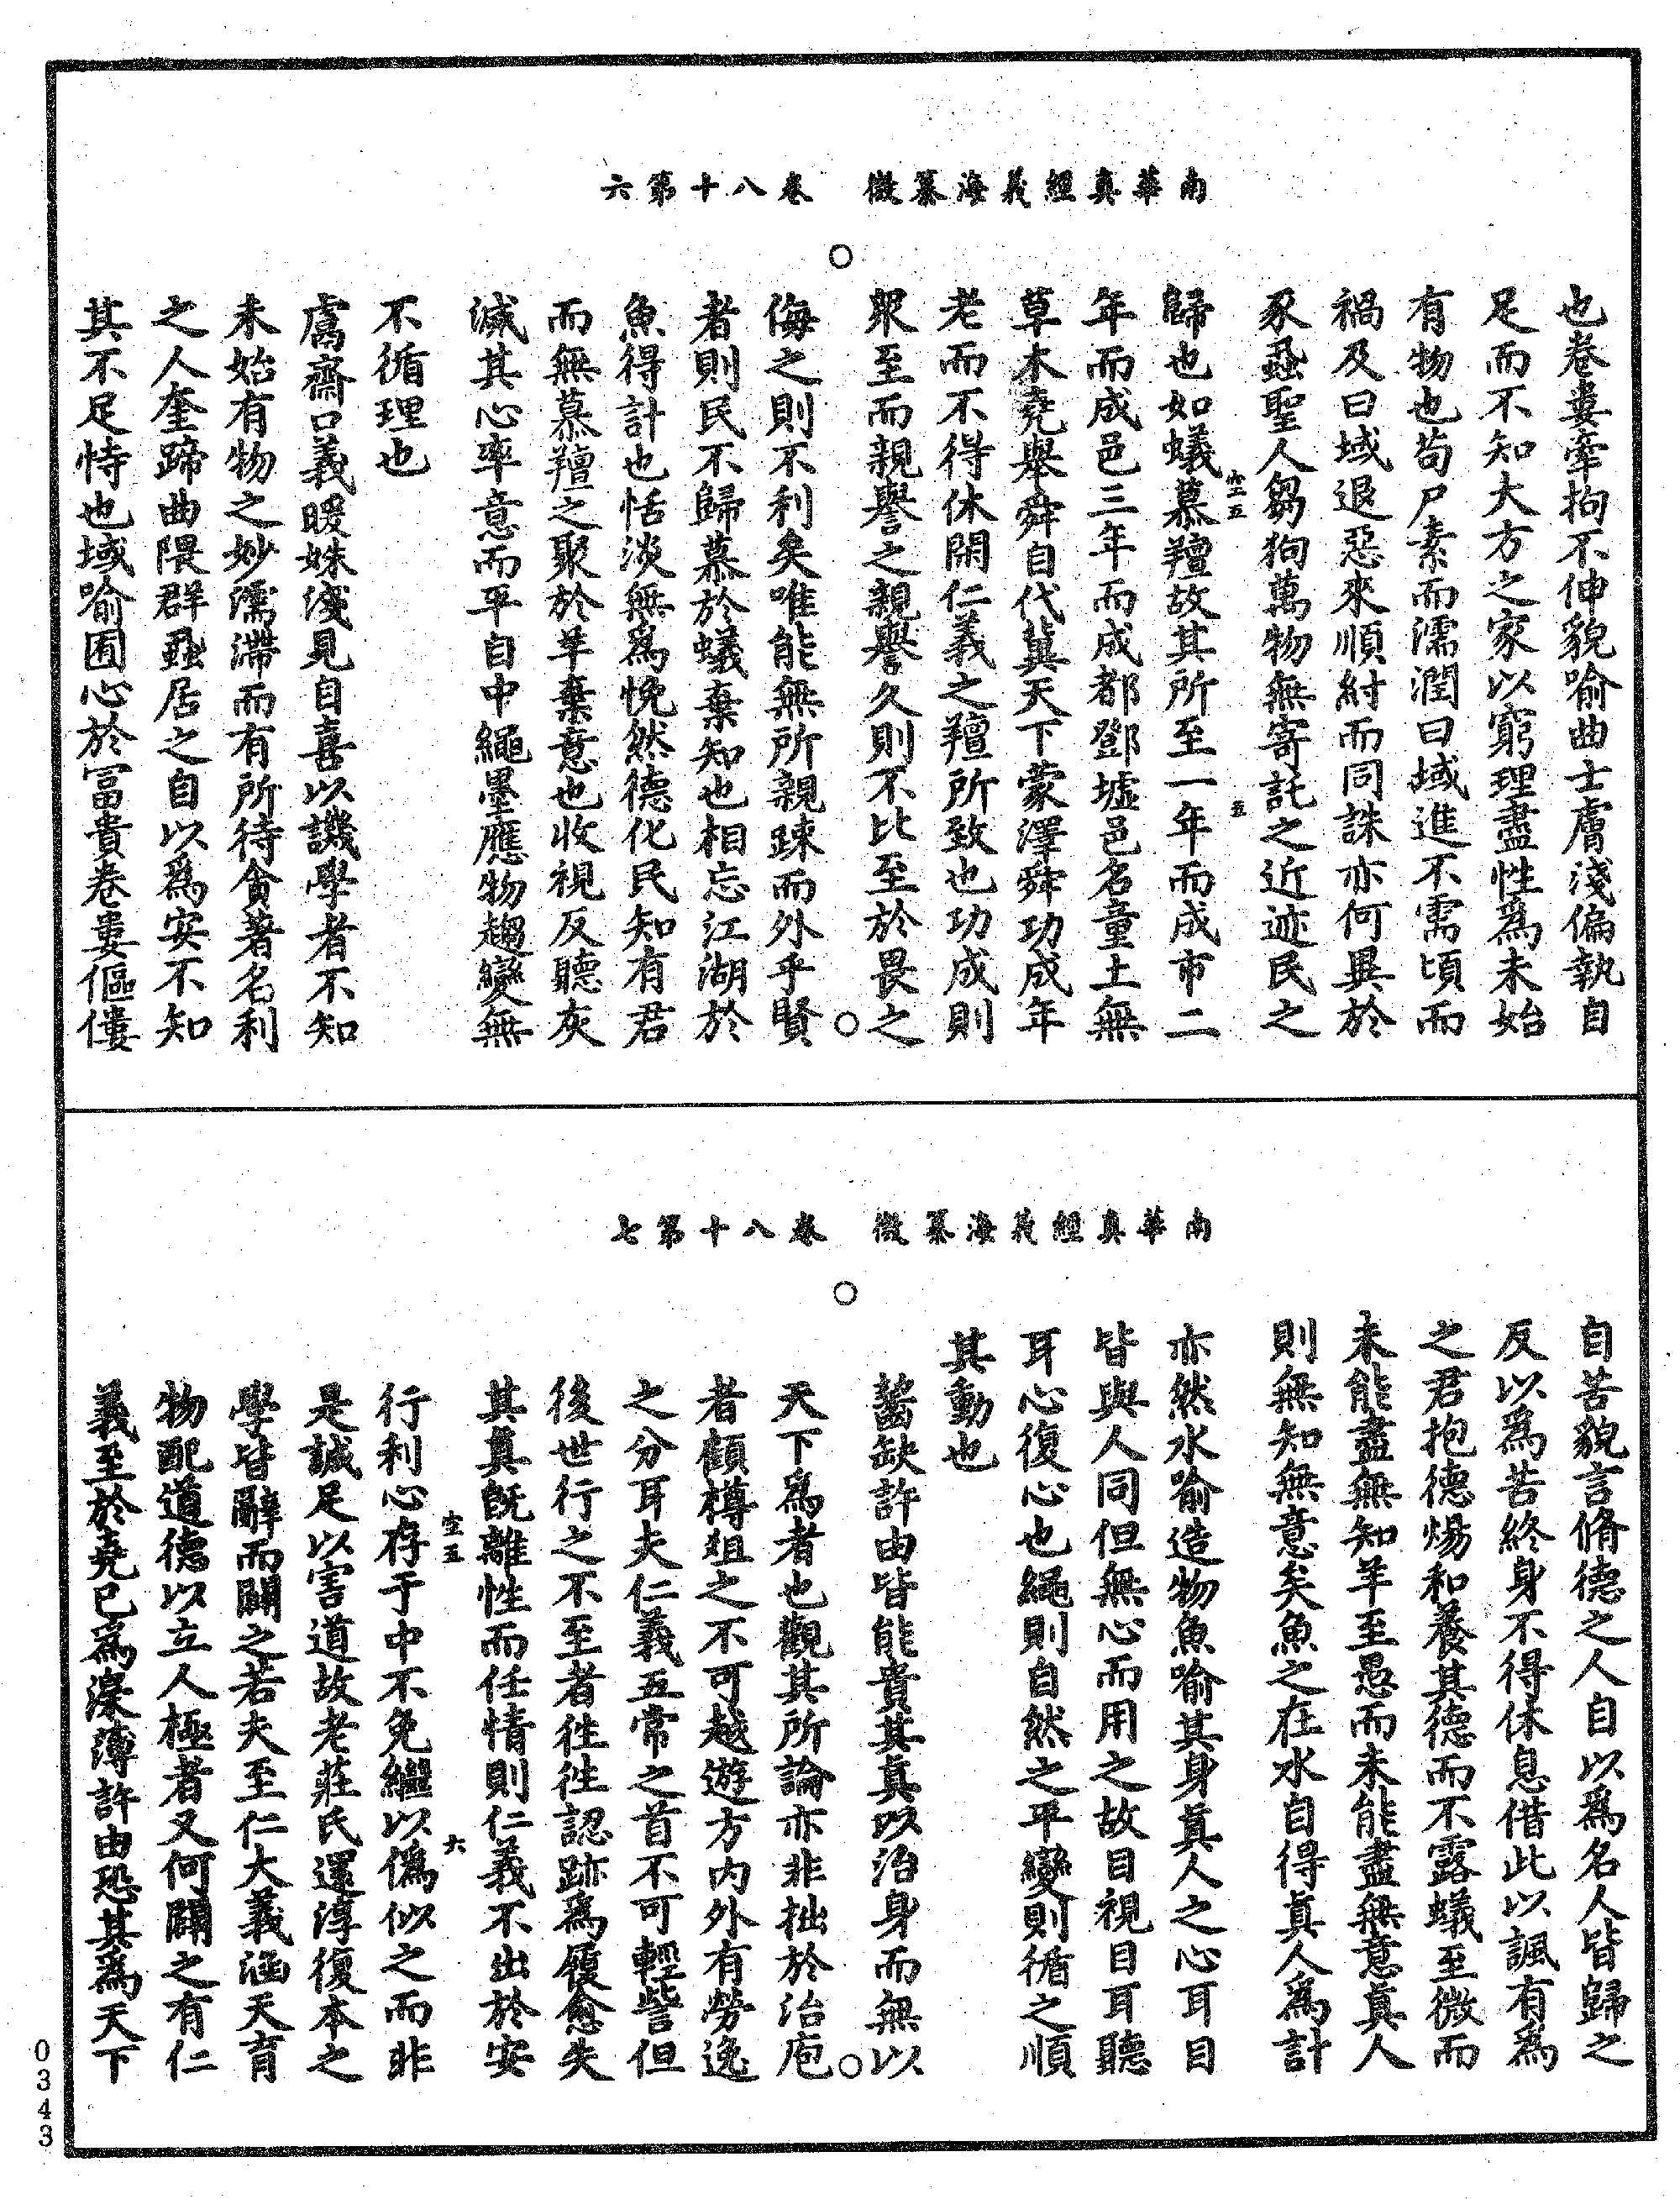 南華真經義海纂微　卷八十第六
也卷婁牽拘不伸貌喻曲士膚淺偏執自
足而不知大方之家以窮理盡性為未始
有物也苟尸素而濡潤曰域進不需頃而
禍及曰域退惡來順紂而同誅亦何異於
豕蝨聖人芻狗萬物無寄託之近迹民之
歸也如蟻慕羶故其所至一年而成市二
年而成邑三年而成都鄧墟邑名童土無
草木堯舉舜自代冀天下蒙澤舜功成年
老而不得休閑仁義之羶所致也功成則
眾至而親譽之親譽久則不比至於畏之
侮之則不利矣唯能無所親踈而外乎賢
者則民不歸慕於蟻棄知也相忘江湖於
魚得計也恬淡無為悗然德化民知有君
而無慕羶之聚於羊棄意也收視反聽灰
滅其心率意而平自中繩墨應物趨變無
不循理也
鬳齋口義暖姝淺見自喜以譏學者不知
未始有物之妙濡滯而有所待貪著名利
之人奎蹄曲隈群蝨居之自以為安不知
其不足恃也域喻囿心於冨貴卷婁傴僂
南華真經義海纂微　卷八十第七
自苦貌言脩德之人自以為名人皆歸之
反以為苦終身不得休息借此以諷有為
之君抱德煬和養其德而不露蟻至微而
未能盡無知羊至愚而未能盡無意真人
則無知無意矣魚之在水自得真人為計
亦然水喻造物魚喻其身真人之心耳目
皆與人同但無心而用之故目視目耳聽
耳心復心也繩則自然之平變則循之順
其動也
齧缺許由皆能貴其真以治身而無以
天下為者也觀其所論亦非拙於治庖
者顧樽俎之不可越遊方內外有勞逸
之分耳夫仁義五常之首不可輕訾但
後世行之不至者徃徃認跡為履愈失
其真既離性而任情則仁義不出於安
行利心存于中不免繼以偽似之而非
是誠足以害道故老莊氏還淳復本之
學皆辭而闢之若夫至仁大義涵天育
物配道德以立人極者又何闢之有仁
義至於堯已為澆薄許由恐其為天下
0343